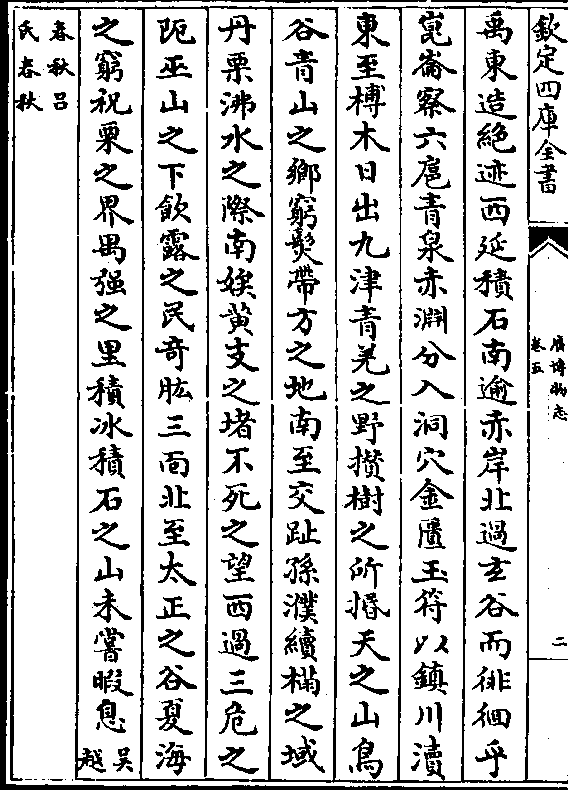 欽定四庫全書
廣博物志
卷五
二
禹東造絶迹西延積石南逾赤岸北過玄谷而徘徊乎
崑崙察六扈青泉赤淵分入洞穴金匱玉符以鎮川瀆
東至榑木日出九津青羌之野攅樹之所㨉天之山鳥
谷青山之鄉窮髮帶方之地南至交趾孫濮續樠之域
丹栗沸水之際南娭黄支之堵不死之望西過三危之
阨巫山之下飲露之民奇肱三面北至太正之谷夏海
之窮祝栗之界禺强之里積冰積石之山未嘗暇息吳越
春秋吕
氏春秋